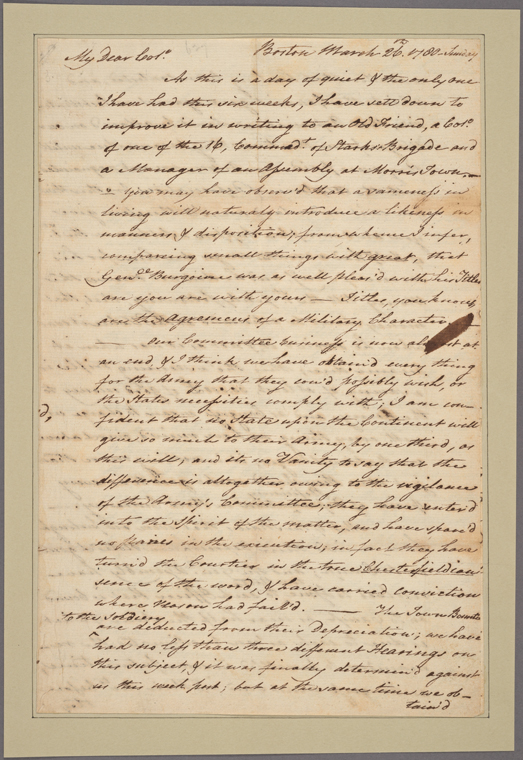 My Dear Colo.
Boston March 26th. 1780 - Sunday
As this is a day of quiet & the only one
I have had this six weeks, I have sett down to
improve it in writing to an Old Friend, a Colo.
of one of the 16, Command.t of Starks Brigade and
a Manager of an Assembly at Morris Town. —
— you may have observ'd that a sameness in
living will naturaly introduce a likeness in
manners & disposition, from whence I infer,
comparing small things with great, that
Genl. Burgoine was as well pleas'd with his Titles
as you are with yours — Titles, you know,
are the Agremens of a Military Character —
— Our Committee business is now at
an end & I think we have obtain'd every thing
for the Army that they cou'd possibly wish, or
the States necessities comply with; I am con-
fident that no State upon the Continent will
give so much to their Army, by one third, as
this will; and its no Vanity to say that the
difference is altogether owing to the vigilance
of the Army's Committee; they have enter'd
into the Spirit of the matter, and have spar'd
no pains in the execution; in fact they have
turn'd the Courtier in the true Chesterfieldian
sence of the word, & have carried conviction
where Reason had fail'd. — The Town Bounties
to the Soldiery
are deducted from their Depreciation; we have
had no less than three different Hearings on
this subject & it was finally determin'd against
us this week past; but at the same time we ob-
tain'd